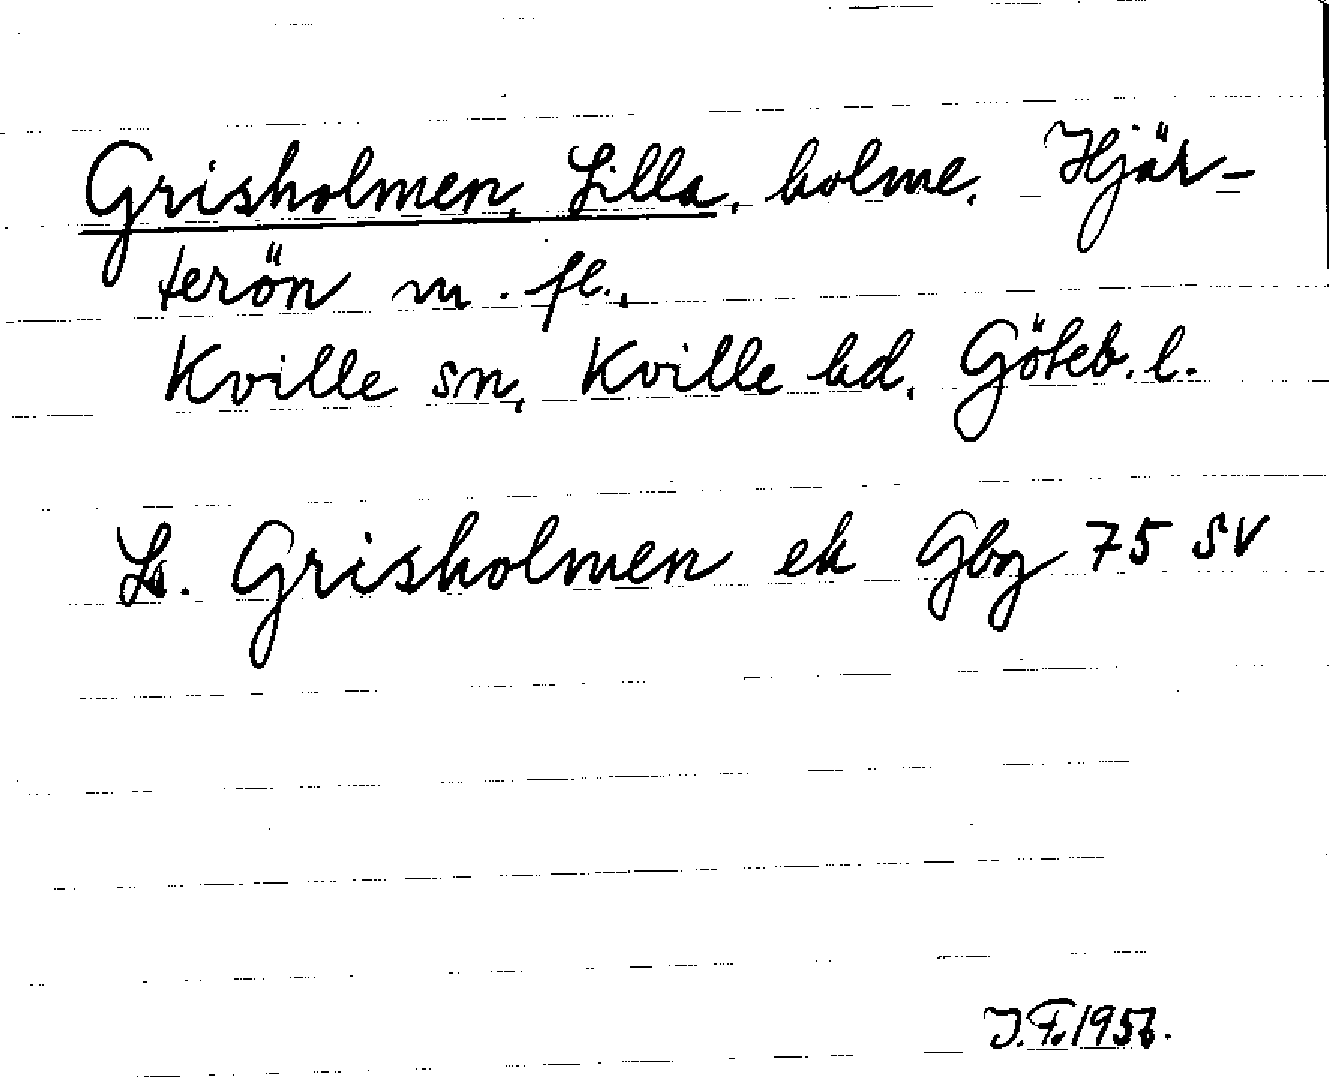 Grisholmen, Lilla, holme, Hjär-
terön m. fl.,
Kville sn, Kville hd, Göteb. l.
La. Grisholmen ek Gbg 75 SV
J.F. 1956.